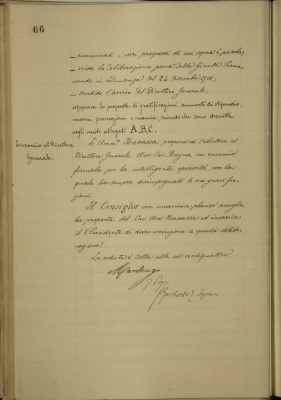 66
— esaminati i vari proposti di cui sopra è parola;
— vista la deliberazione presa dalla Giunta
in adunanza del 24 Dicembre 1911;
— sentito l'avviso del Direttore Generale;
approva le proposte di gratificazioni, aumenti di stipendio,
promozioni
negli uniti allegati A.B.C.
Encomio al Direttore
Generale.
Il Comm. Bavassa propone di tributare al
Direttore Generale Avv. Cav. Bagna un encomio
formale per la intelligente operosità, con la
quale ha sempre disimpegnato le sue gravi fun-
zioni.
Il Consiglio con unanime plauso accoglie
la proposta del Cav. Avv. Bavassa ed incarica
il Presidente di dare esecuzione a questa delibe-
razione.
La seduta è tolta alle ore